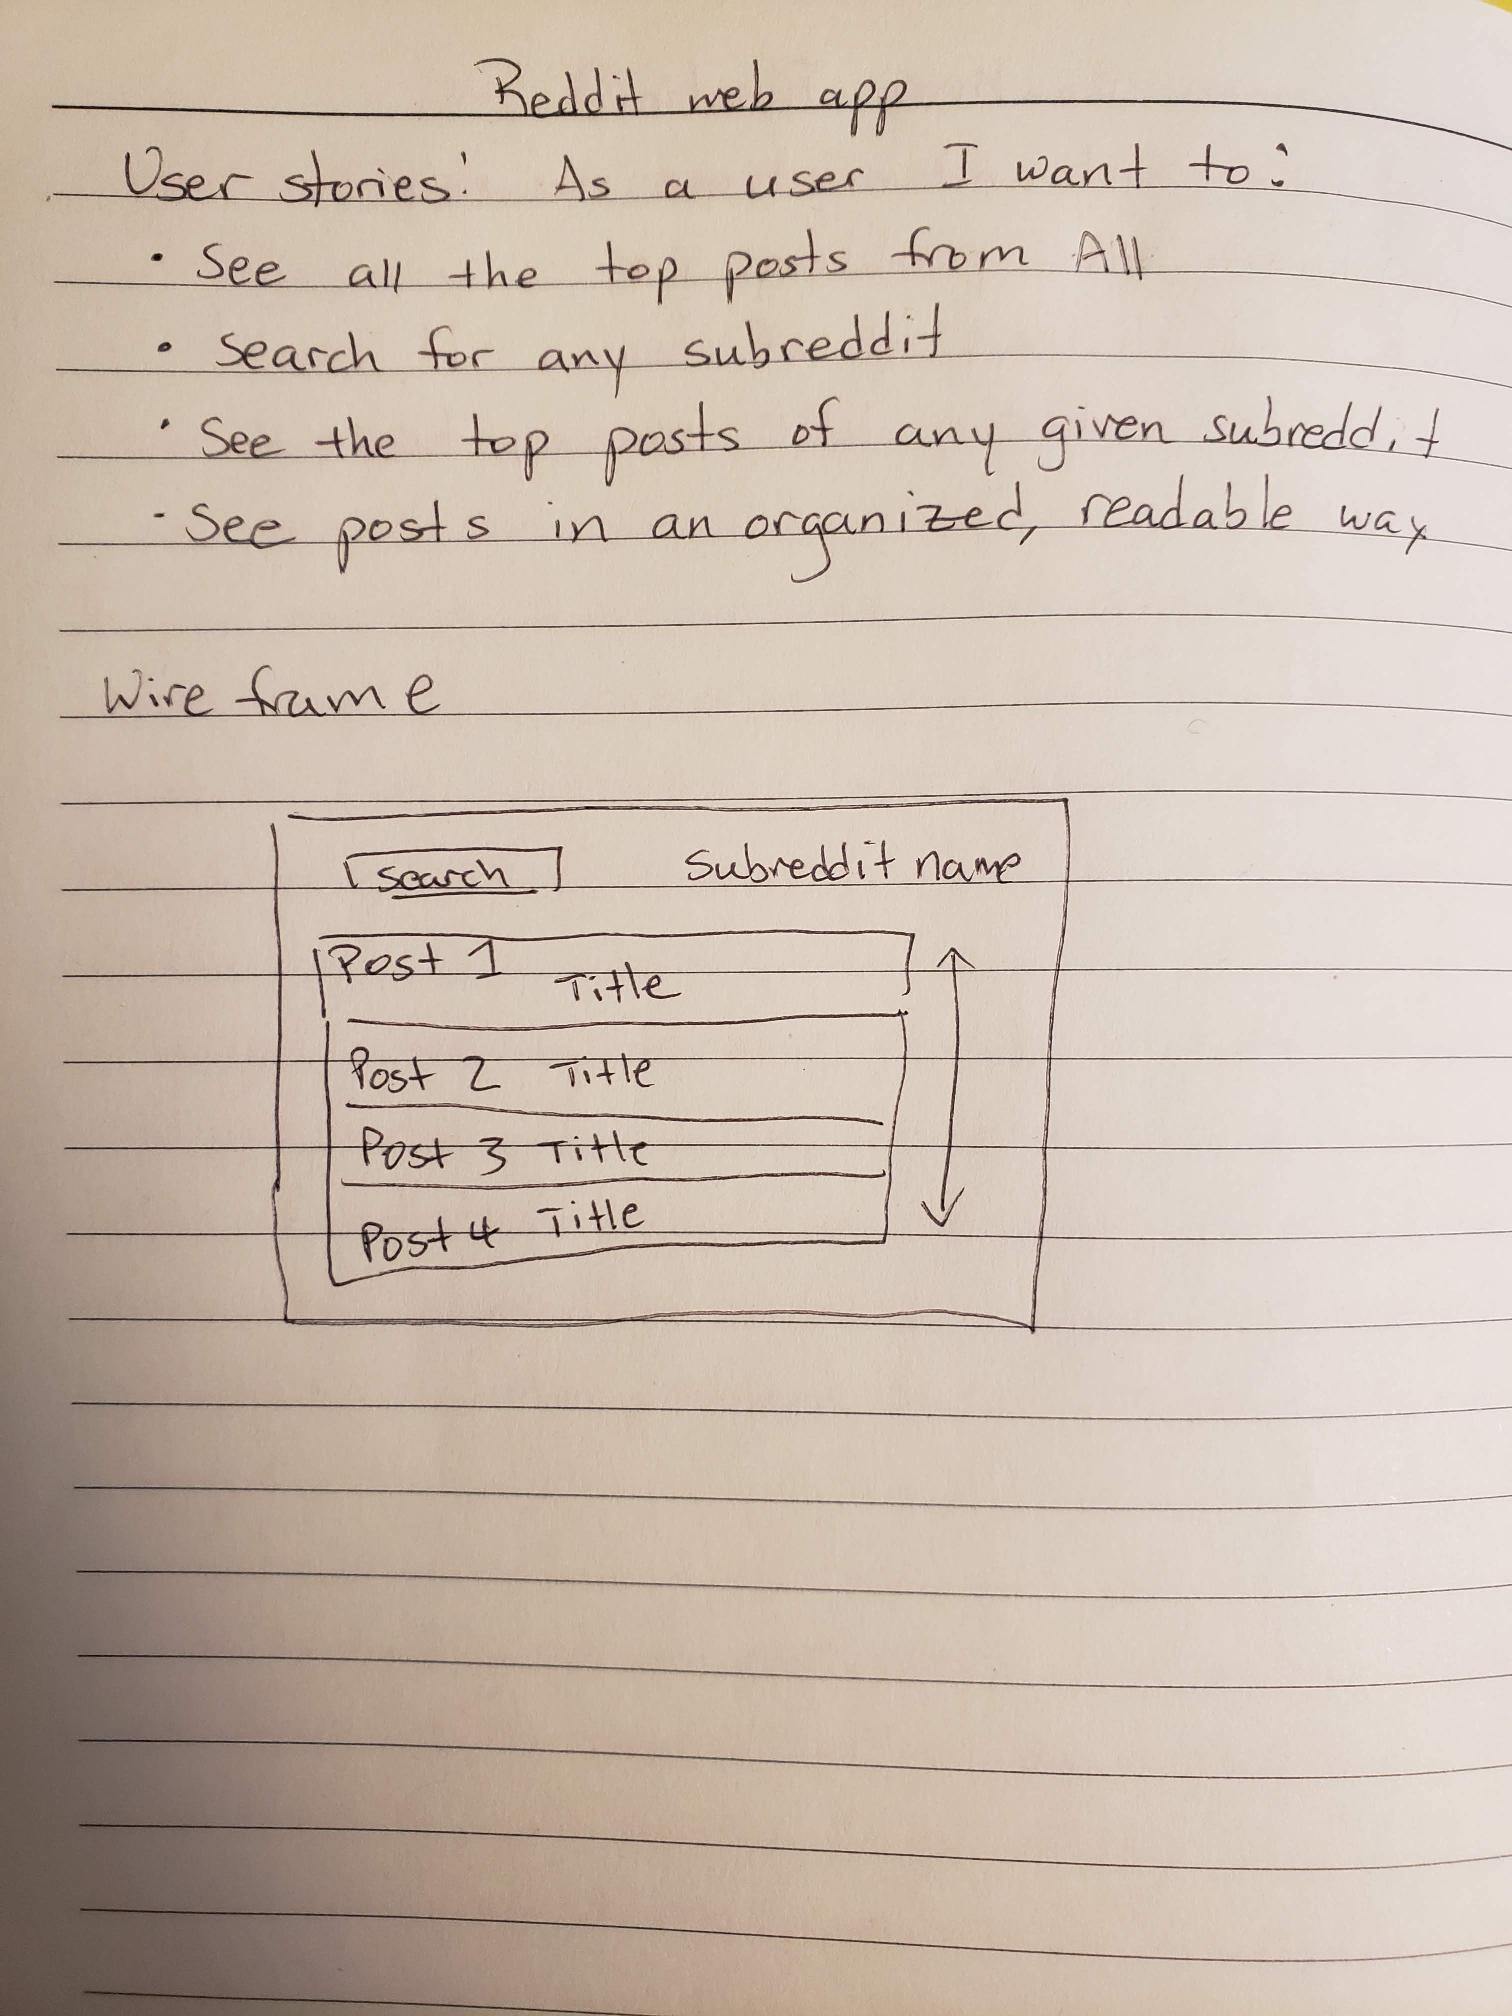 Reddit web app
User stories: As a user I want to:
• See all the top posts from All
• Search for any subreddit
• See the top posts of any given subreddit
- See posts in an organized, readable way
Wire frame
Search Subreddit name
Post 1 Title
Post 2 Title
Post 3 Title
Post 4 Title